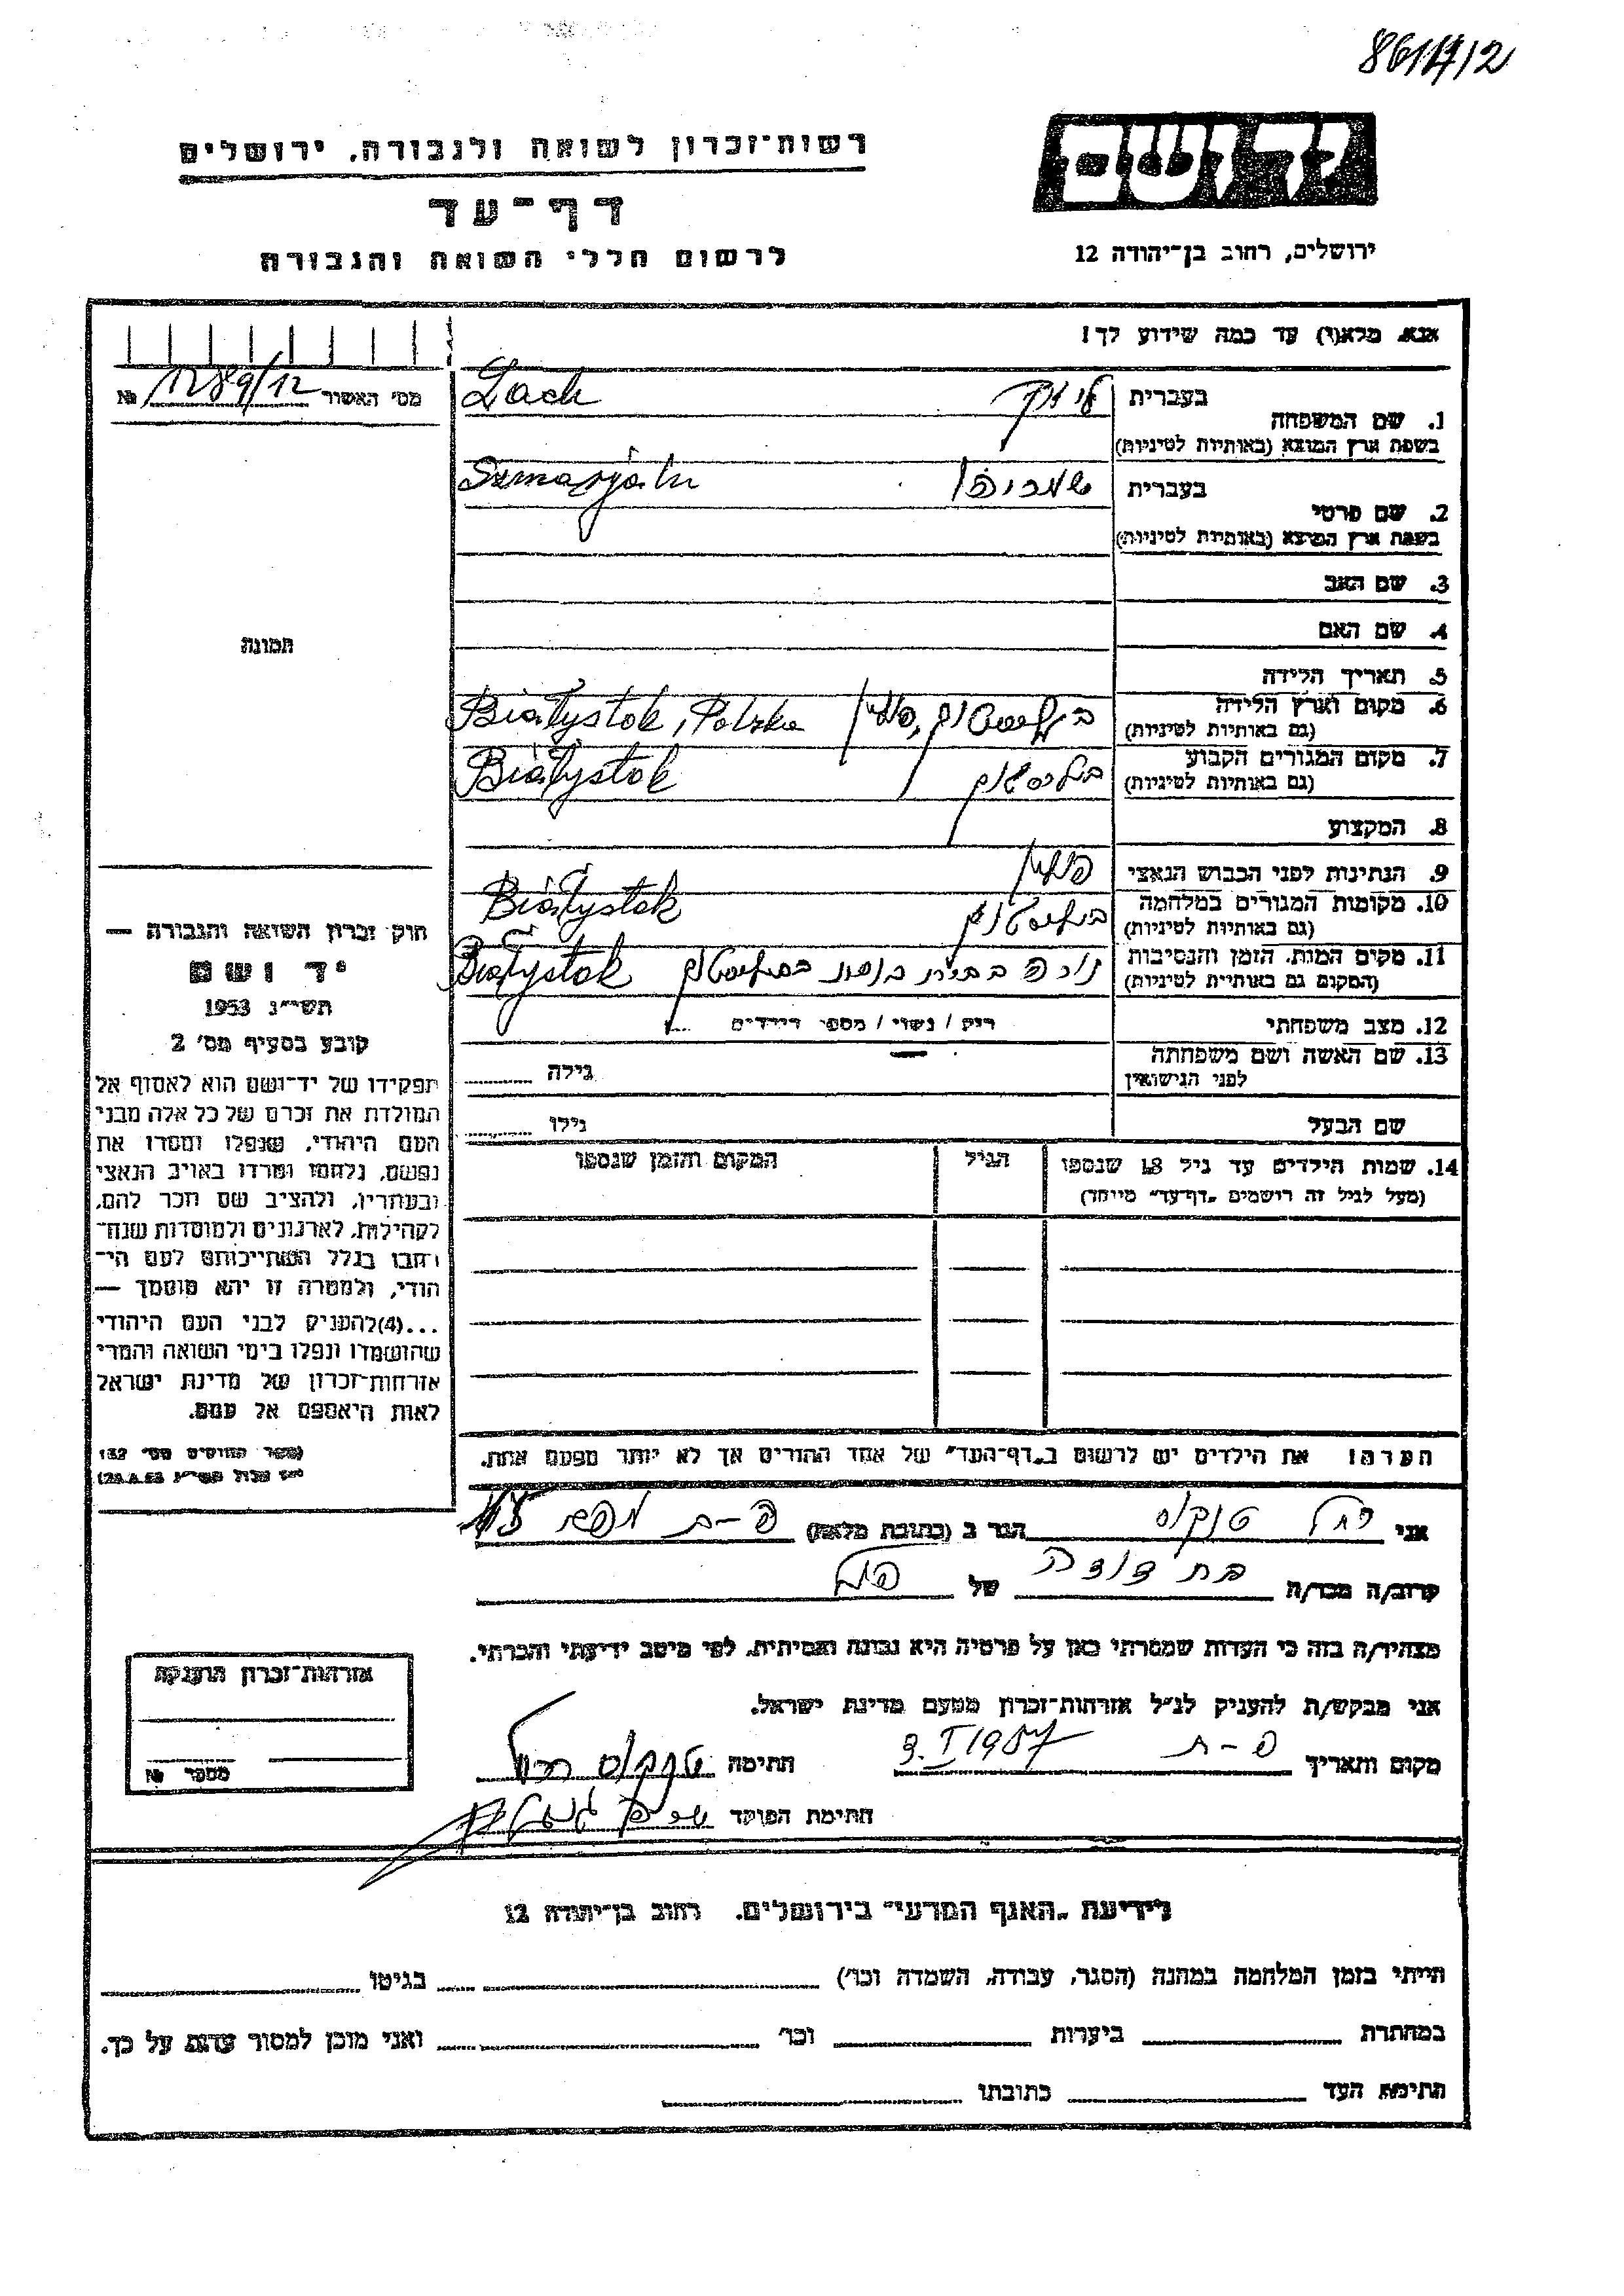 861/12
רשות־זכרון לשואה ולגבורה, ירושלים
דף־עד
לרשום חללי השואה והגבורה
יד ושם
ירושלים, רחוב בן־יהודה 12
אנא, מלא(י) עד כמה שידוע לך!
מס׳ האשור № 1289/12
תמונה
1. שם המשפחה בעברית
בשפת ארץ המוצא (באותיות לטיניות)
Zach
2. שם פרטי בעברית
בשפת ארץ המוצא (באותיות לטיניות)
שמריהו Szmarjahu
3. שם האב
4. שם האם
5. תאריך הלידה
6. מקום וארץ הלידה
(גם באותיות לטיניות)
ביאליסטוק, פולין Białystok, Polska
7. מקום המגורים הקבוע
(גם באותיות לטיניות)
ביאליסטוק Białystok
8. המקצוע
9. הנתינות לפני הכבוש הנאצי פולין
10. מקומות המגורים במלחמה
(גם באותיות לטיניות)
ביאליסטוק Białystok
11. מקום המות, הזמן והנסיבות
(המקום גם באותיות לטיניות)
נורה בבית כנסת בביאליסטוק Białystok
12. מצב משפחתי רוק / נשוי / מספר הילדים
13. שם האשה ושם משפחתה
לפני הנישואין
גילה
שם הבעל גילו
14. שמות הילדים עד גיל 18 שנספו
(מעל לגיל זה רושמים „דף־עד״ מיוחד)
הגיל
המקום והזמן שנספו
הערה: את הילדים יש לרשום ב„דף־העד״ של אחד ההורים אך לא יותר מפעם אחת.
חוק זכרון השואה והגבורה —
יד ושם
תשי״ג 1953
קובע בסעיף מס׳ 2
תפקידו של יד־ושם הוא לאסוף אל
המולדת את זכרם של כל אלה מבני
העם היהודי, שנפלו ומסרו את
נפשם, נלחמו ומרדו באויב הנאצי
ובעוזריו, ולהציב שם וזכר להם,
לקהילות, לארגונים ולמוסדות שנח־
רבו בגלל השתייכותם לעם הי־
הודי, ולמטרה זו יהא מוסמך —
...(4) להעניק לבני העם היהודי
שהושמדו ונפלו בימי השואה והמרי
אזרחות־זכרון של מדינת ישראל
לאות היאספם אל עמם.
(ספר החוקים מס׳ 132
אני רחל הגר ב (כתובת מלאה) פ־ת
קרוב/ה מכר/ה בת דודה של
מצהיר/ה בזה כי העדות שמסרתי כאן על פרטיה היא נכונה ואמיתית, לפי מיטב ידיעתי והכרתי.
אני מבקש/ת להעניק לנ״ל אזרחות־זכרון מטעם מדינת ישראל.
מקום ותאריך פ־ת 3.I 1957 חתימה
חתימת הפוקד
אזרחות־זכרון הוענקה
מספר №
לידיעת „האגף המדעי״ בירושלים, רחוב בן־יהודה 12
הייתי בזמן המלחמה במחנה (הסגר, עבודה, השמדה וכו׳) בגיטו
במחתרת ביערות וכו׳ ואני מוכן למסור עדות על כך.
חתימת העד כתובתו